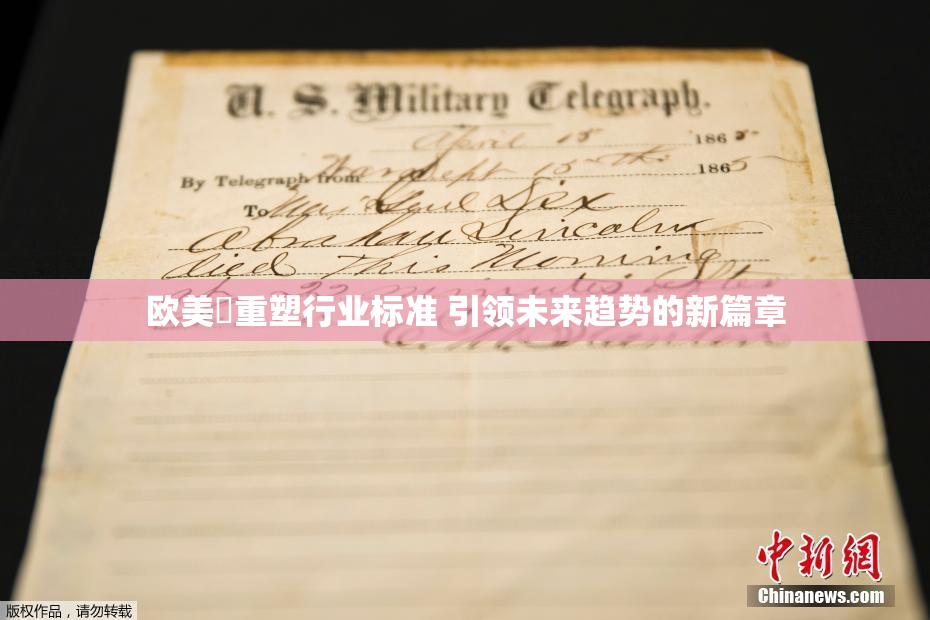 U. S. Military Telegraph.
April 15 1865
By Telegraph from War Dept 15th 1865
To Maj Genl Dix
Abraham Lincoln
died This Morning
at 22 minutes after
欧美▯重塑行业标准 引领未来趋势的新篇章
E. M. Stanton
中新网
Chinanews.com
版权作品，请勿转载